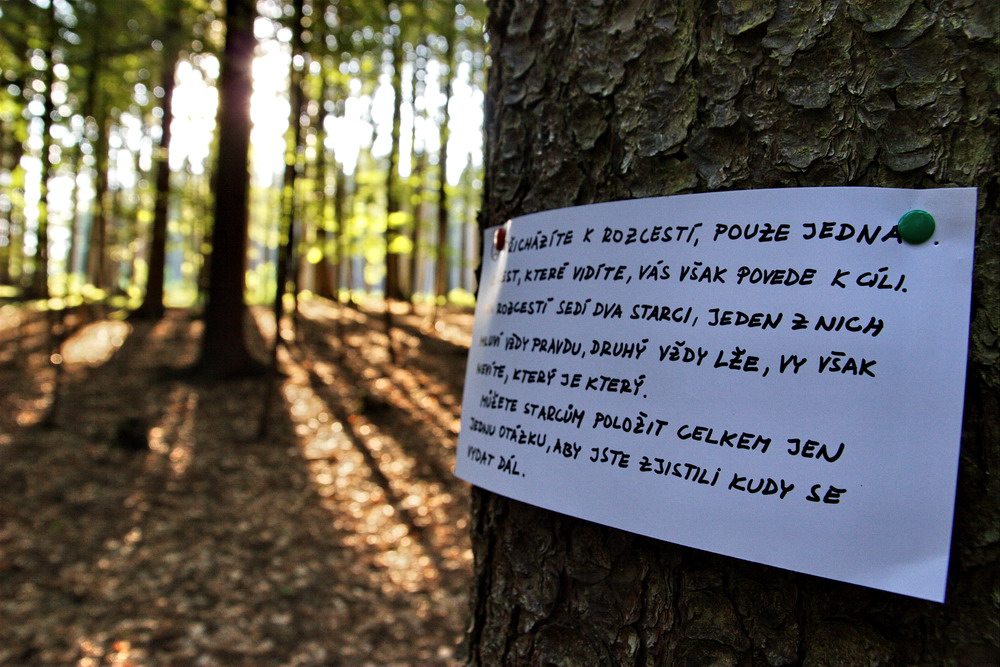 PŘICHÁZÍTE K ROZCESTÍ, POUZE JEDNA .
CEST, KTERÉ VIDÍTE, VÁS VŠAK POVEDE K CÍLI.
ROZCESTÍ SEDÍ DVA STARCI, JEDEN Z NICH
MLUVÍ VŽDY PRAVDU, DRUHÝ VŽDY LŽE, VY VŠAK
NEVÍTE, KTERÝ JE KTERÝ.
MŮŽETE STARCŮM POLOŽIT CELKEM JEN
JEDNU OTÁZKU, ABY JSTE ZJISTILI KUDY SE
VYDAT DÁL.